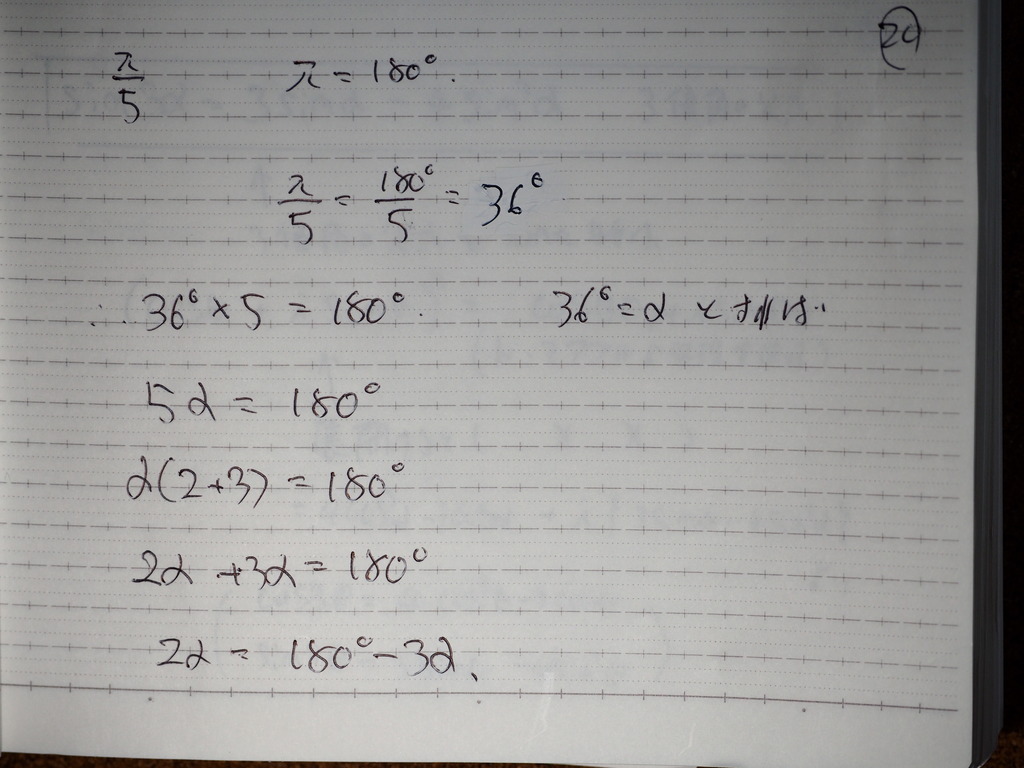 24
π/5 π = 180°.
π/5 = 180°/5 = 36°
∴ 36° × 5 = 180°. 36° = α とすれば..
5α = 180°
α(2+3) = 180°
2α + 3α = 180°
2α = 180° - 3α.